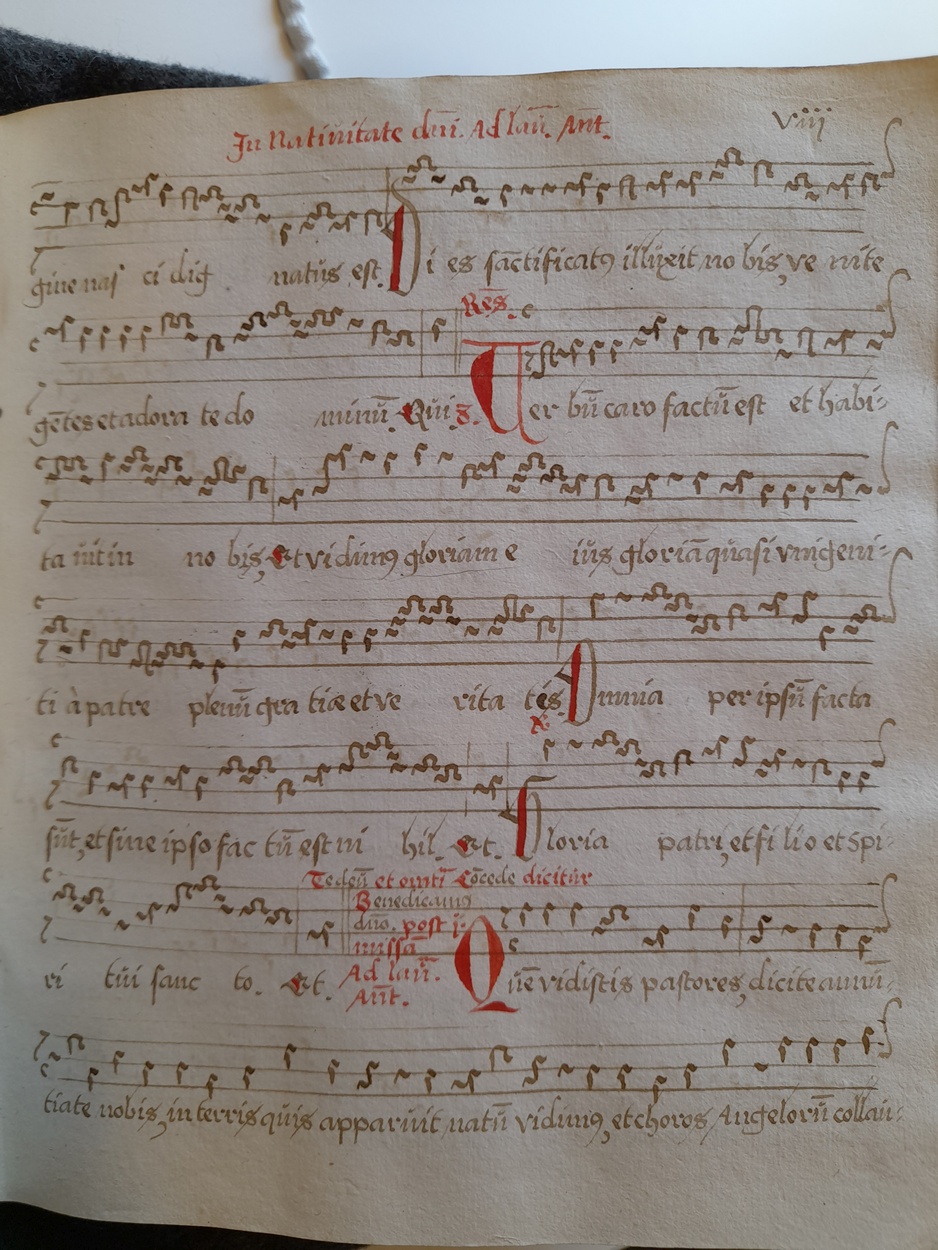 In Natiuitate dnī. Ad laū. Ant. viij
giue nas ci dig natus est. Di es sāctificatꝰ illuxit no bis, ve nite
gētes et adora te do minū. Quis. Res. Uer bū caro factū est et habi-
ta uit in no bis, Et vidimꝰ gloriam e ius gloriā quasi vnigeni-
ti à patre plenū gra tiæ et ve rita tis. ℣. Omnia per ipsū facta
sūt, et sine ipso fac tū est ni hil. Et. Gloria patri, et fi lio et Spi-
Te deū et oratī Cōcede dicitur
Benedicamꝰ
dnō. post i.
missā
ri tui sanc to. Et. Ad laū. Quē vidistis pastores, dicite annū-
Ant.
tiate nobis, in terris quis apparuit natū vidimꝰ, et choros Angelorū collau-